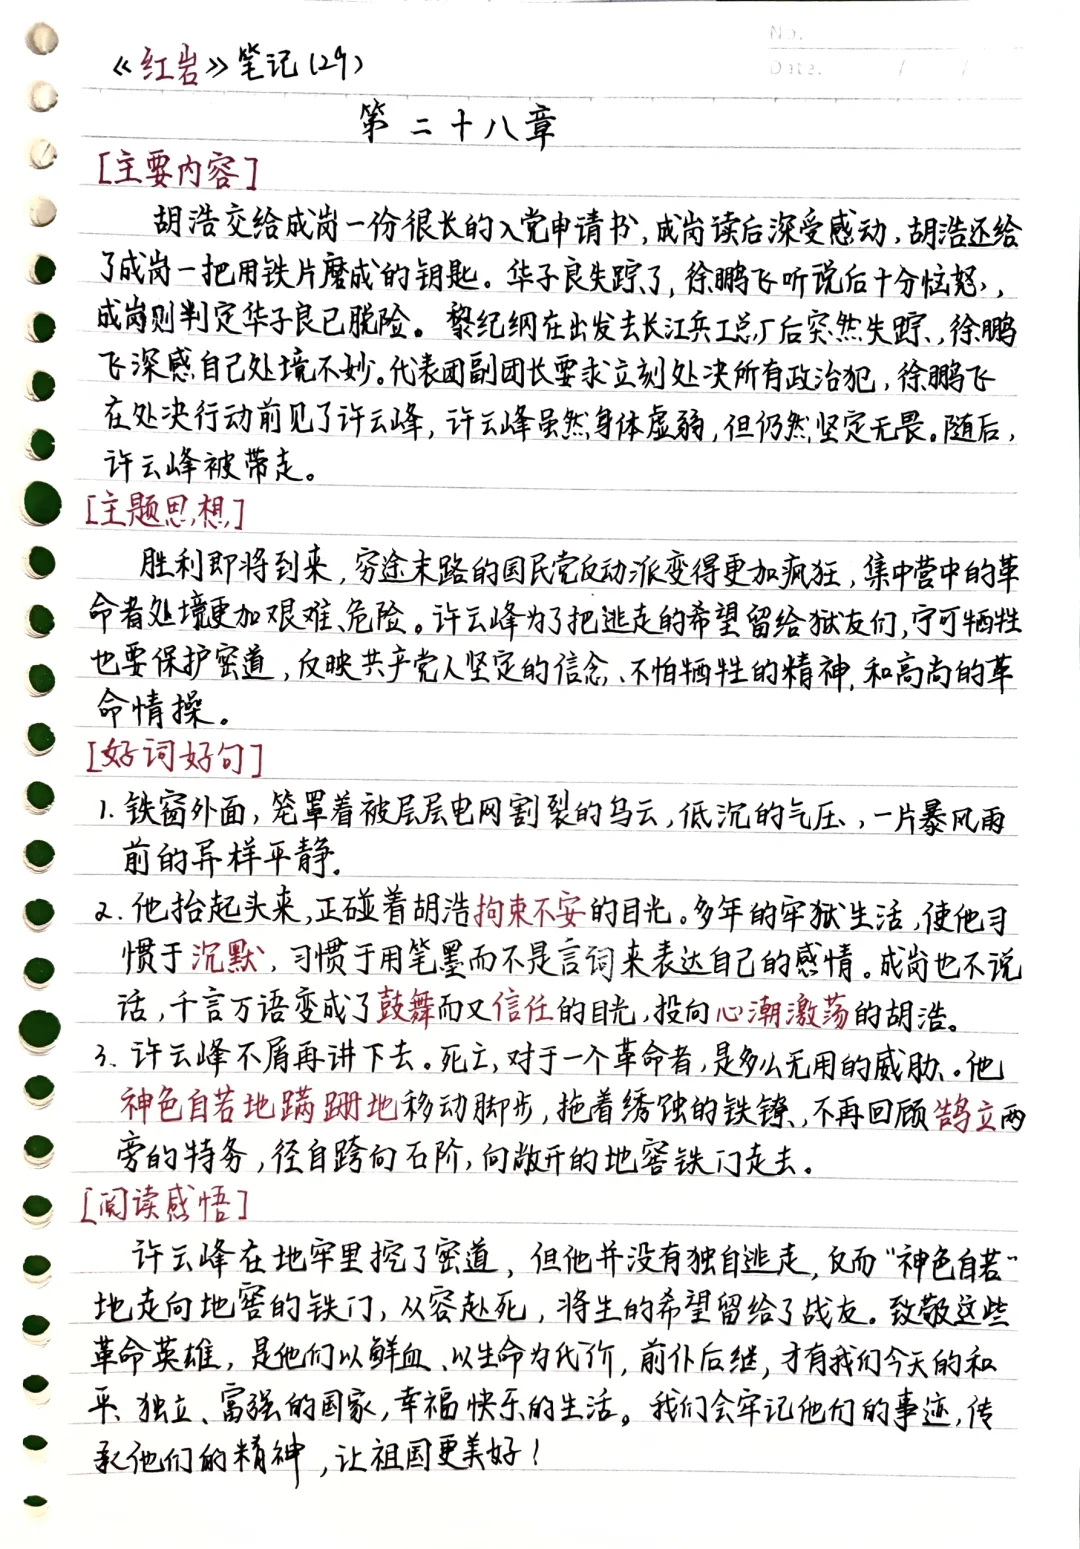 No.
Date. / /
《红岩》笔记(29)
第二十八章
[主要内容]
胡浩交给成岗一份很长的入党申请书,成岗读后深受感动,胡浩还给
了成岗一把用铁片磨成的钥匙。华子良失踪了,徐鹏飞听说后十分恼怒,
成岗则判定华子良已脱险。黎纪纲在出发去长江兵工总厂后突然失踪,徐鹏
飞深感自己处境不妙。代表团副团长要求立刻处决所有政治犯,徐鹏飞
在处决行动前见了许云峰,许云峰虽然身体虚弱,但仍然坚定无畏。随后,
许云峰被带走。
[主题思想]
胜利即将到来,穷途末路的国民党反动派变得更加疯狂,集中营中的革
命者处境更加艰难、危险。许云峰为了把逃走的希望留给狱友们,宁可牺牲
也要保护密道,反映共产党人坚定的信念、不怕牺牲的精神,和高尚的革
命情操。
[好词好句]
1. 铁窗外面,笼罩着被层层电网割裂的乌云,低沉的气压,一片暴风雨
前的异样平静.
2. 他抬起头来,正碰着胡浩拘束不安的目光。多年的牢狱生活,使他习
惯于沉默,习惯于用笔墨而不是言词来表达自己的感情。成岗也不说
话,千言万语变成了鼓舞而又信任的目光,投向心潮激荡的胡浩。
3. 许云峰不屑再讲下去。死亡,对于一个革命者,是多么无用的威胁。他
神色自若地蹒跚地移动脚步,拖着锈蚀的铁镣,不再回顾鹄立两
旁的特务,径自跨向石阶,向敞开的地窖铁门走去。
[阅读感悟]
许云峰在地牢里挖了密道,但他并没有独自逃走,反而“神色自若”
地走向地窖的铁门,从容赴死,将生的希望留给了战友。致敬这些
革命英雄,是他们以鲜血、以生命为代价,前仆后继,才有我们今天的和
平、独立、富强的国家,幸福快乐的生活。我们会牢记他们的事迹,传
承他们的精神,让祖国更美好!